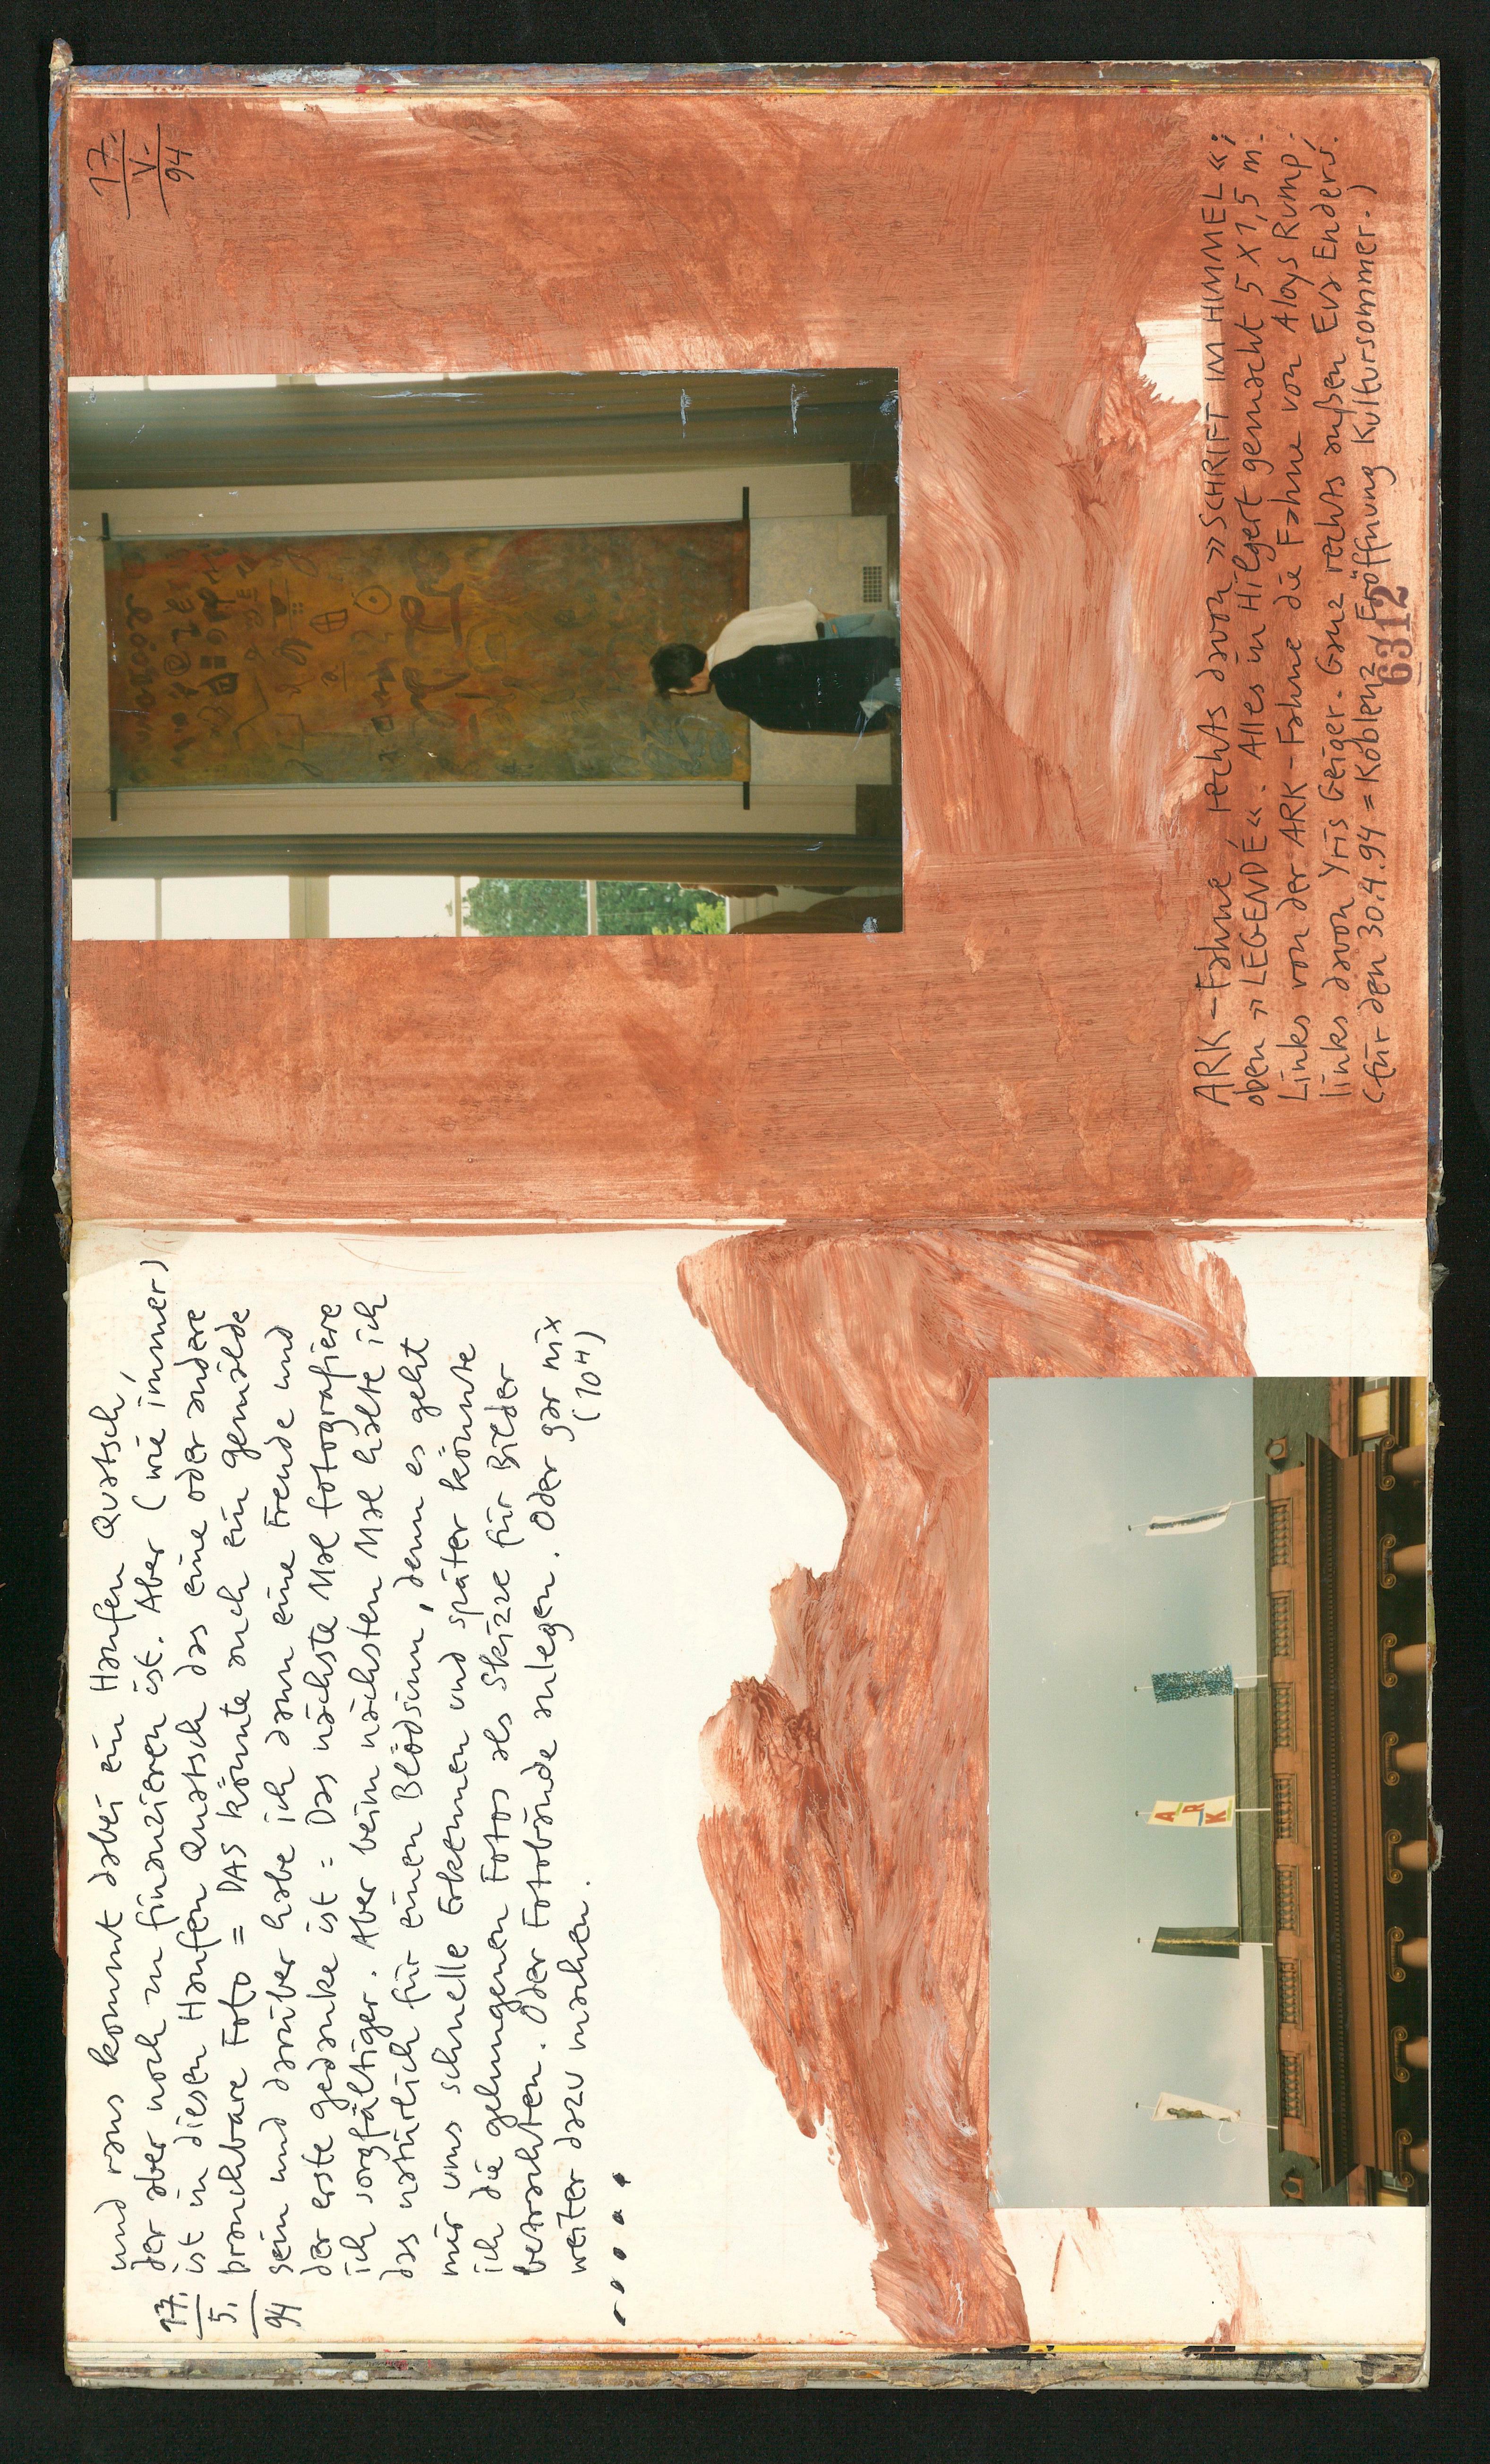 17.
5.
94
und raus kommt dabei ein Haufen Quatsch,
der aber noch zu finanzieren ist. Aber (wie immer)
ist in diesen Haufen Quatsch das eine oder andere
brauchbare Foto = DAS könnte auch ein gemälde
sein und darüber habe ich dann eine Freude und
der erste gedanke ist: Das nächste Mal fotografiere
ich sorgfältiger. Aber beim nächsten Mal halte ich
das natürlich für einen Blödsinn, denn es geht
mir ums schnelle Erkennen und später könnte
ich die gelungenen Fotos als Skizze für Bilder
betrachten. Oder Fotobände anlegen. Oder gar nix
weiter dazu machen. (104)
.....
A
R
K
17.
V.
94
ARK-Fahne, rechts davon »SCHRIFT IM HIMMEL«;
oben »LEGENDE«. Alles in Hilgert gemacht 5 x 1,5 m.
Links von der ARK-Fahne die Fahne von Aloys Rump;
links davon Yris Geiger. Ganz rechts außen Eva Enders.
(für den 30.4.94 = Koblenz, Eröffnung Kultursommer.)
6312